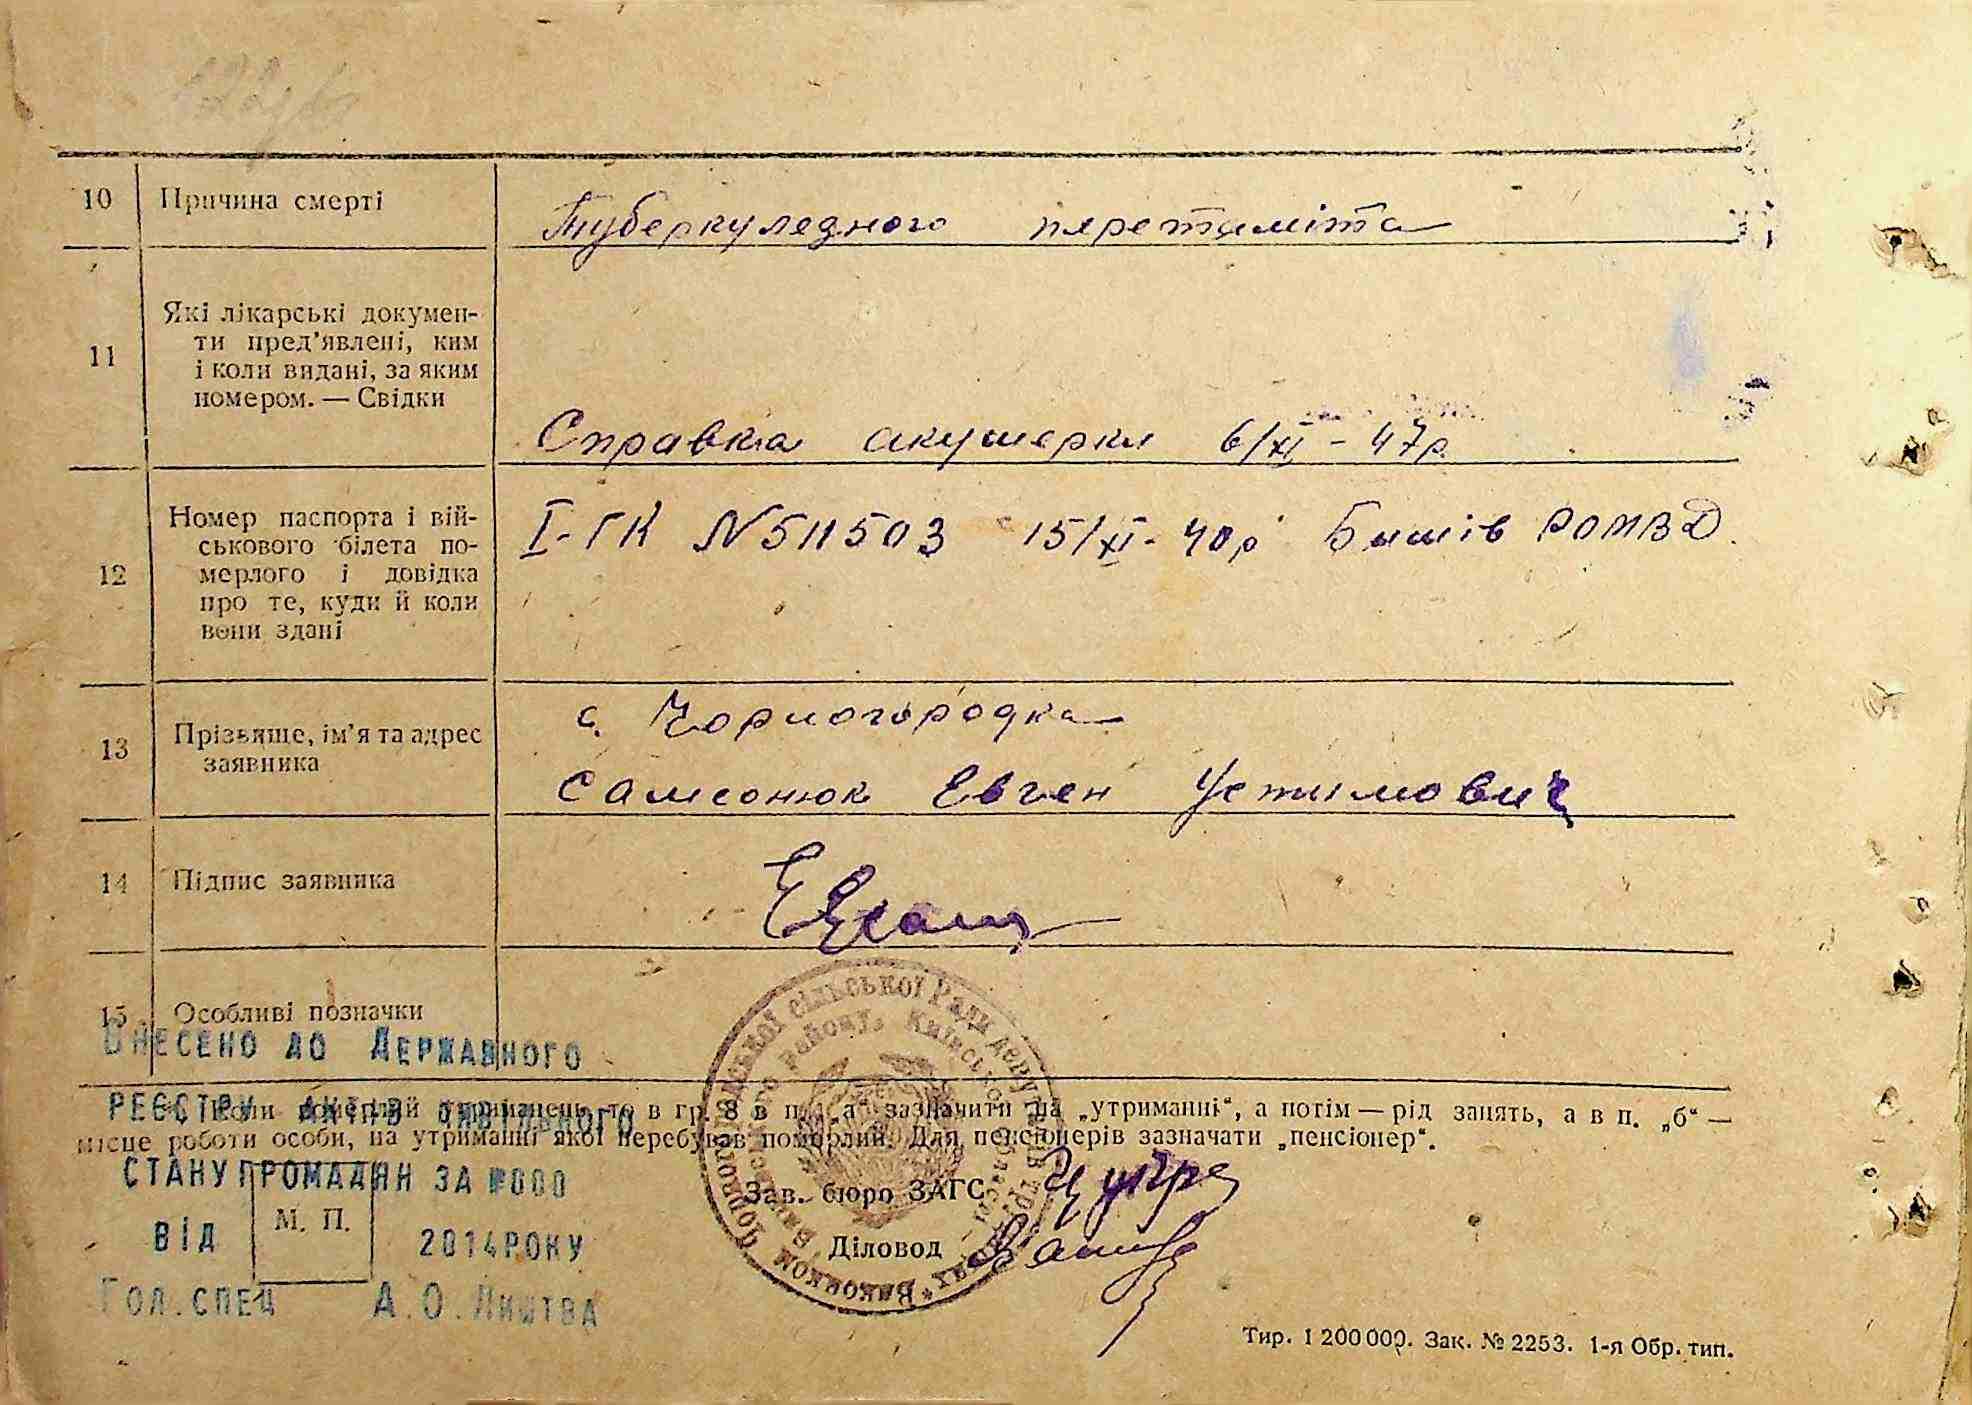 10 Причина смерті
Туберкуледного перетаміта
11 Які лікарські докумен-
ти пред’явлені, ким
і коли видані, за яким
номером. — Свідки
Справка акушерки 6/XI - 47р.
12 Номер паспорта і вій-
ськового білета по-
мерлого і довідка
про те, куди й коли
вони здані
I-ГК N511503 15/XI - 40р Бишів РОМВД.
13 Прізвище, ім’я та адрес
заявника
с. Чорногородка
Самсонюк Евген Устимович
14 Підпис заявника
15 Особливі позначки
ВНЕСЕНО ДО ДЕРЖАВНОГО
РЕЄСТРУ АКТІВ ЦИВІЛЬНОГО
СТАНУ ГРОМАДЯН ЗА №000
ВІД 2014РОКУ
ГОЛ.СПЕЦ А.О.ЛИШТВА
Коли померлий утриманець, то в гр. 8 в п. „а“ зазначити на „утриманні“, а потім — рід занять, а в п. „б“ —
місце роботи особи, на утриманні якої перебував померлий. Для пенсіонерів зазначати „пенсіонер“.
М. П.
Зав. бюро ЗАГС
Діловод
сільської Ради депутатів
району, Київської області
Виконком
Тир. 1 200 000. Зак. № 2253. 1-я Обр. тип.